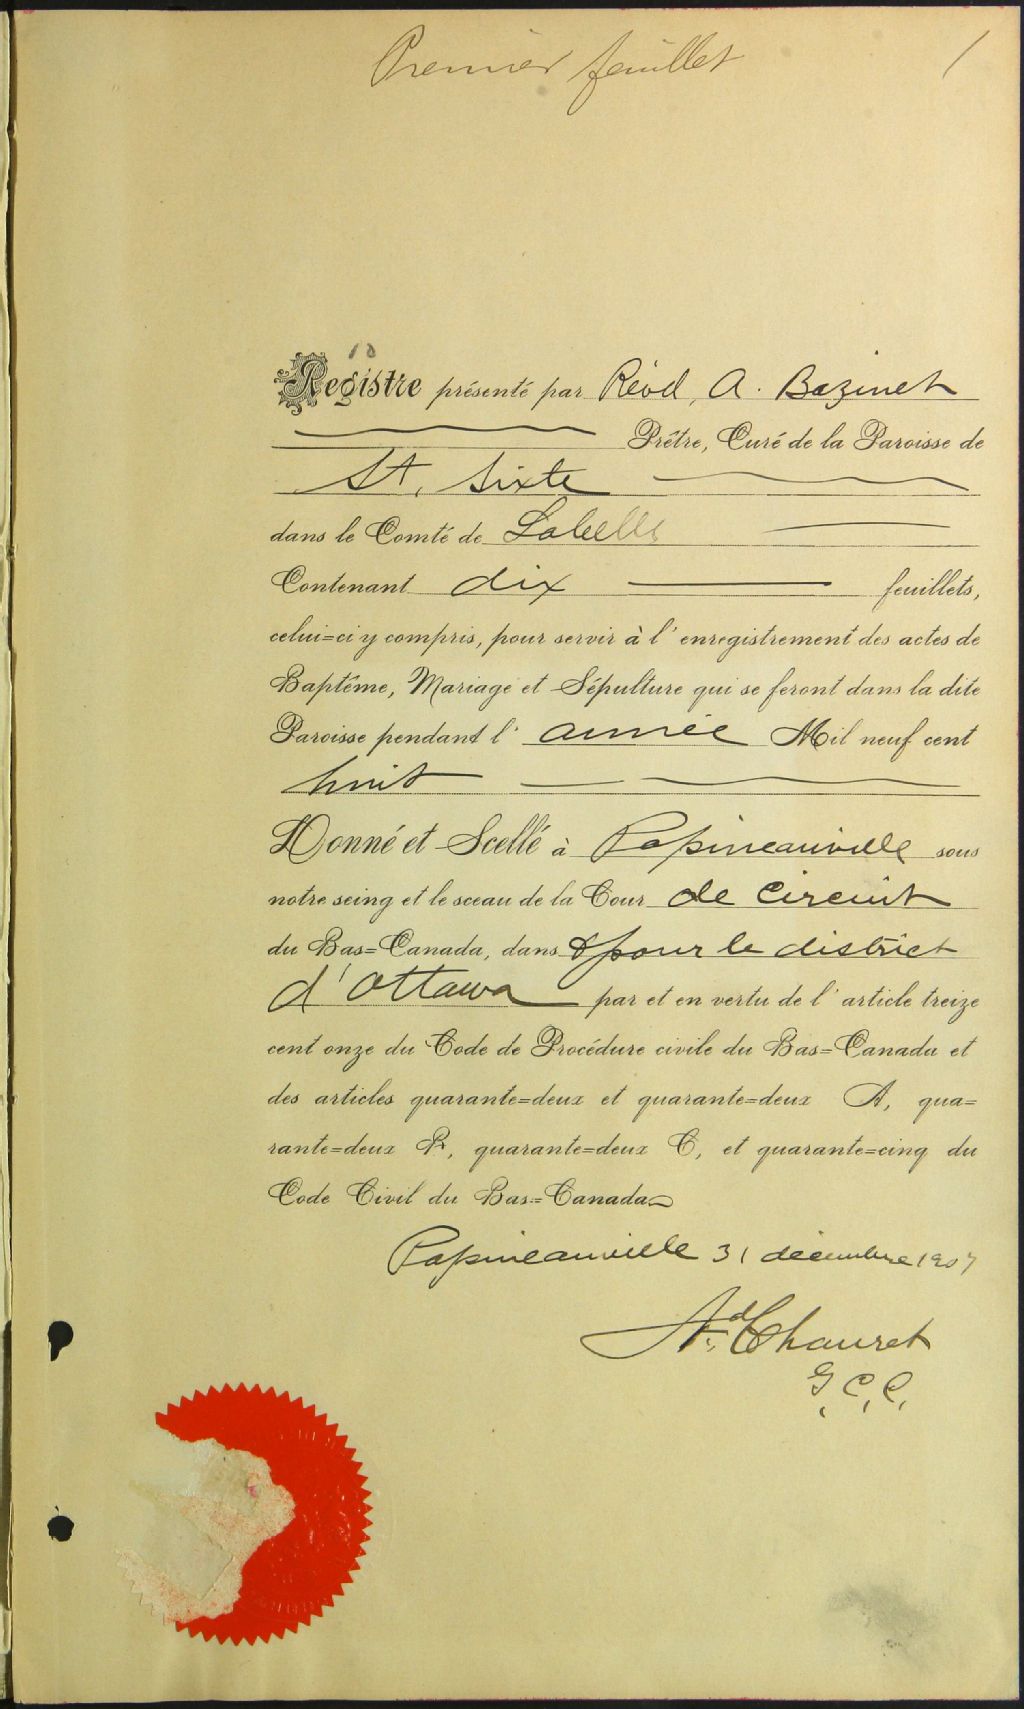 Premier feuillet 1
10
Registre présenté par Révd. A. Bazinet
Prêtre, Curé de la Paroisse de
St. Sixte
dans le Comté de Labelle
Contenant dix feuillets,
celui=ci y compris, pour servir à l'enregistrement des actes de
Baptême, Mariage et Sépulture qui se feront dans la dite
Paroisse pendant l'année Mil neuf cent
huit
Donné et Scellé à Papineauville sous
notre seing et le sceau de la Cour de circuit
du Bas=Canada, dans & pour le district
d'Ottawa par et en vertu de l'article treize
cent onze du Code de Procédure civile du Bas=Canada et
des articles quarante=deux et quarante=deux A, qua=
rante=deux B, quarante=deux C, et quarante=cinq du
Code Civil du Bas=Canada
Papineauville 31 décembre 1907
Ad. Chauret
G. C. C.